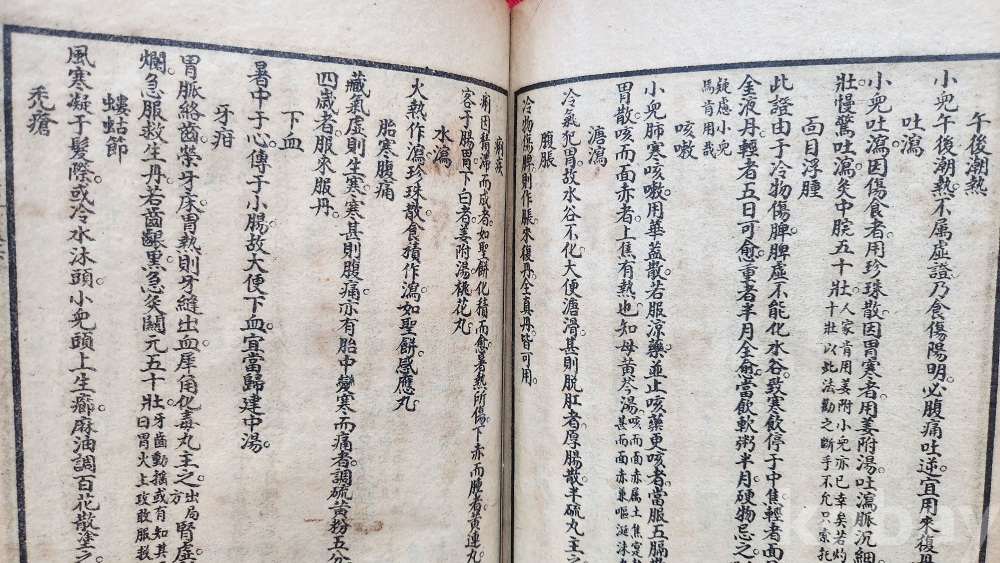 午後潮熱
小兒午後潮熱不属虛證乃食傷陽明必腹痛吐逆宜用來復丹
吐瀉
小兒吐瀉因傷食者用珍珠散因胃寒者用姜附湯吐瀉脈沉細
壯慢驚吐瀉灸中脘五十壯人家肯用姜附小兒亦已幸矣若灼
十壯以此法勸之斷手不允只索托
面目浮腫
此證由于冷物傷脾脾虛不能化水谷致寒飲停于中焦輕者面
金液丹輕者五日可愈重者半月全愈當飲軟粥半月硬物忌之
疑慮小兒
焉肯用哉
咳嗽
小兒肺寒咳嗽用華蓋散若服涼藥並止咳藥更咳者當服五膈
胃散咳而面赤者上焦有熱也知母黄芩湯咳而面赤属土焦
甚而面赤兼嘔涎沫
溏瀉
冷氣犯胃故水谷不化大便溏滑甚則脱肛者厚腸散半硫丸主之
腹脹
冷物傷脾則作脹來復丹全真丹皆可用
痢疾
痢因積滞而成者如聖餅化積而愈暑熱所傷下赤而腫者黄連丸
客于腸胃下白者姜附湯桃花丸
水瀉
火熱作瀉珍珠散食積作瀉如聖餅感應丸
胎寒腹痛
藏氣虛則生寒寒甚則腹痛亦有胎中變寒而痛者調硫黄粉五分
四歲者服來服丹
下血
暑中于心傳于小腸故大便下血宜當歸建中湯
牙疳
胃脈絡齒榮牙床胃熱則牙縫出血犀角化毒丸主之出局方腎虛
爛急服救生丹若齒齦黒急灸關元五十壯牙齒動搖或有知其
曰胃火上攻敢服
螻蛄節
風寒凝于髮際或冷水沐頭小兒頭上生癤麻油調百花散塗之
禿瘡
kobay